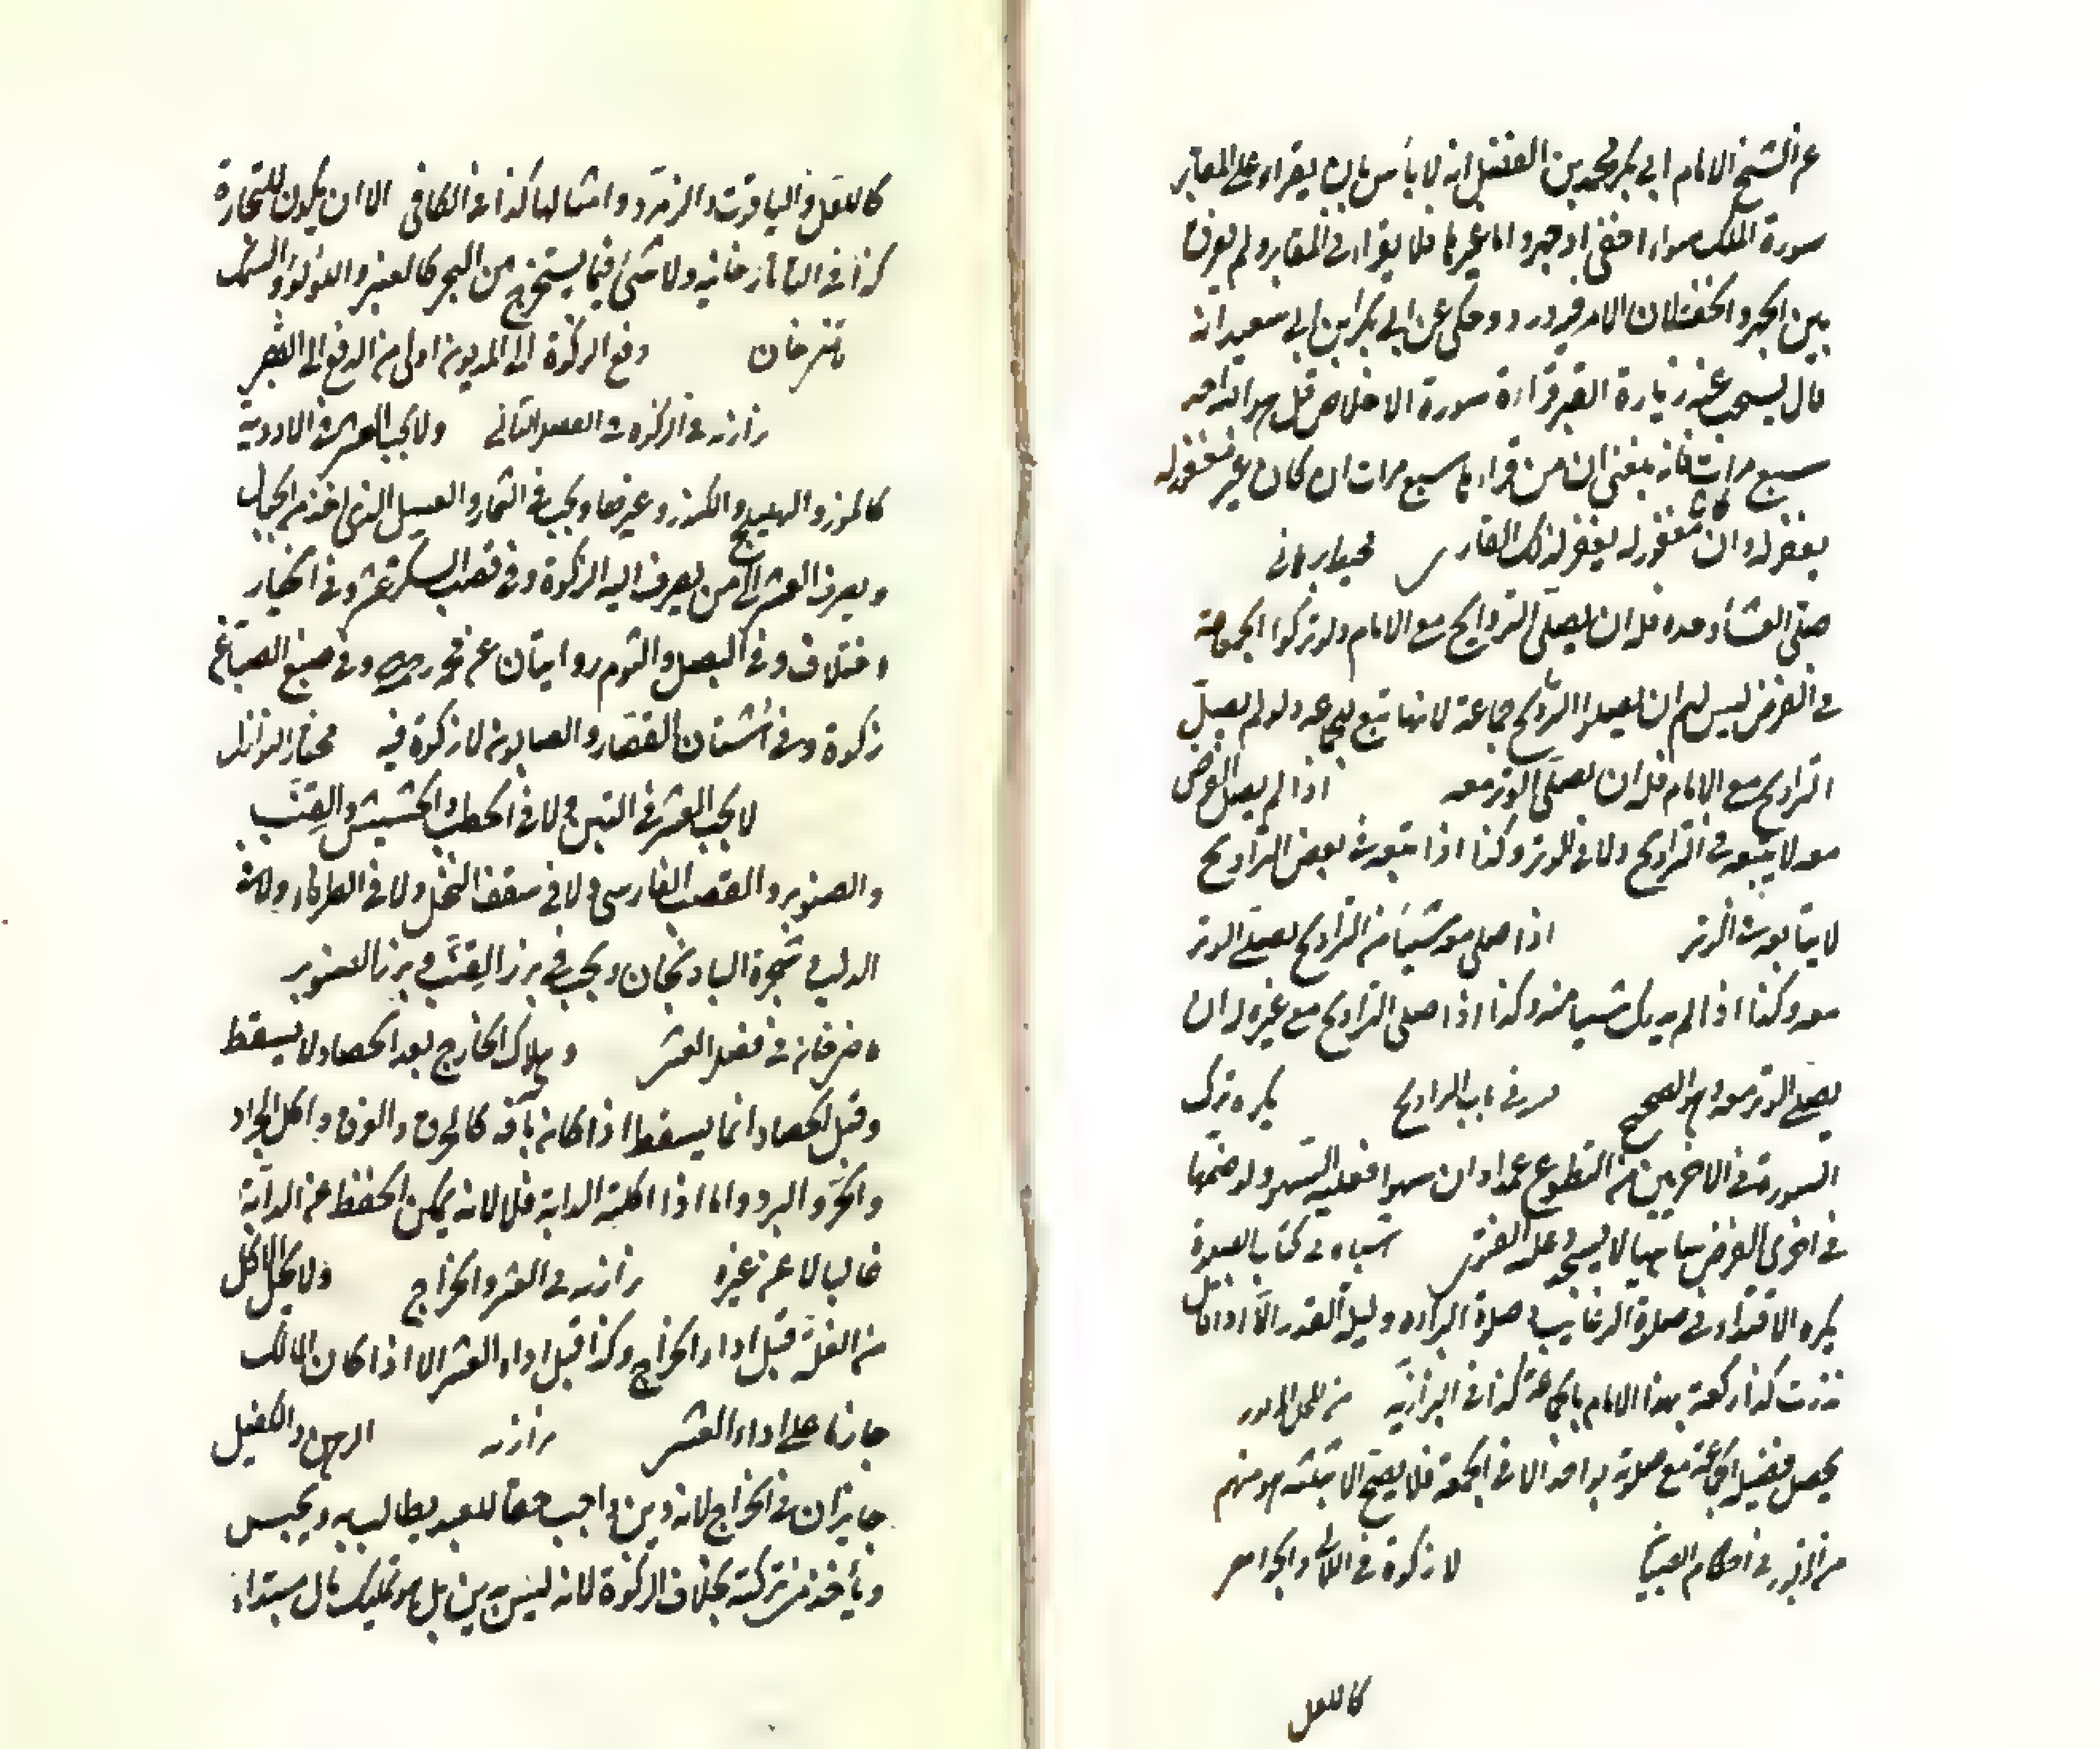 عن الشيخ الامام ابي بكر محمد بن الفضل انه لا بأس بان يقراء على المقابر
سورة الملك سواء اخفى او جهر واما غيرها فلا يقراء في المقابر ولم يفرق
بين الجهر والخفية لان الامر فيه ورد وحكى عن ابي بكر ابن ابي سعيد انه
قال يستحب عند زيارة القبر قراءة سورة الاخلاص قل هو الله احد
سبع مرات فانه بلغني ان من قراءها سبع مرات ان كان غير مغفور له
يغفر له وان كان مغفور له يغفر لذلك القارى محيط برهاني
صلى العشاء وحده فله ان يصلى التراويح مع الامام ولو تركوا الجماعة
في الفرض ليس لهم ان يصلوا التراويح جماعة لانها تبع للجماعة ولو لم يصل
التراويح مع الامام فله ان يصلى الوتر معه اذا لم يصل الفرض
معه لا يتبعه في التراويح ولا في الوتر وكذا اذا لم يتابعه في بعض التراويح
لا يتابعه في الوتر اذا صلى معه شيئا من التراويح يصلى الوتر
معه وكذا اذا لم يدرك شيئا منه وكذا اذا صلى التراويح مع غيره له ان
يصلى الوتر معه وهو الصحيح درر في باب التراويح يكره ترك
السورة في الاخريين من التطوع عمدا وان سهوا فعليه السهو ولو ضمها
في اخرى الفرض ساهيا لا يسجد وعليه الفتوى اشباه في كتاب الصلوة
يكره الاقتداء في صلوة الرغائب وصلوة البراءة وليلة القدر الا اذا قال
نذرت كذا ركعة بهذا الامام بالجماعة كذا في البزازية من المحل المزبور
يحصل فضيلة الجماعة مع صلوته بواحد الا في الجمعة فلا يصح الا بثلثة هو منهم
من المزبور في احكام الصبيان لا زكوة في اللآلى والجواهر
كاللعل
كاللعل والياقوت والزمرد وامثالها كذا في الكافي الا ان يكون للتجارة
كذا في التاتارخانيه ولا شئ فيما يستخرج من البحر كالعنبر واللؤلؤ والسمك
تترخان دفع الزكوة الى المديون اولى من الدفع الى الفقير
بزازيه في الزكوة في الفصل الثاني ولا يجب العشر في الادوية
كالموز والهليلج والكندر وغيرها ويجب في الثمار والعسل الذي اخذ من الجبال
ويصرف العشر الى من يصرف اليه الزكوة وفي قصب السكر عشر وفي الخيار
اختلاف وفي البصل والثوم روايتان عن محمد رح وفي صبغ الصباغ
زكوة وفي اشنان القصار والصابون لا زكوة فيه مختار النوازل
لا يجب العشر في التبن ولا في الحطب والحشيش والقنب
والصنوبر والقصب الفارسى ولا في سعف النخل ولا في الطرفاء ولا في
الدلب وشجرة الباذنجان ويجب في بزر القنب وبزر الصنوبر
تاترخانه في فصل العشر وهلاك الخارج بعد الحصاد لا يسقط
وقبل الحصاد انما يسقط اذا كان بآفة كالحرق والغرق واكل الجراد
والحر والبرد واما اذا اكلته الدابة فلا لانه يمكن الحفظ عن الدابة
غالبا لا عن غيره بزازيه في العشر والخراج ولا يحل الاكل
من الغلة قبل اداء الخراج وكذا قبل اداء العشر الا اذا كان المالك
عازما على اداء العشر بزازيه الرهن والكفيل
جايزان في الخراج لانه دين واجب حقا للعبد يطالب به ويحبس
ويأخذ من تركته بخلاف الزكوة لانه ليس بدين بل هو تمليك مال مبتداء